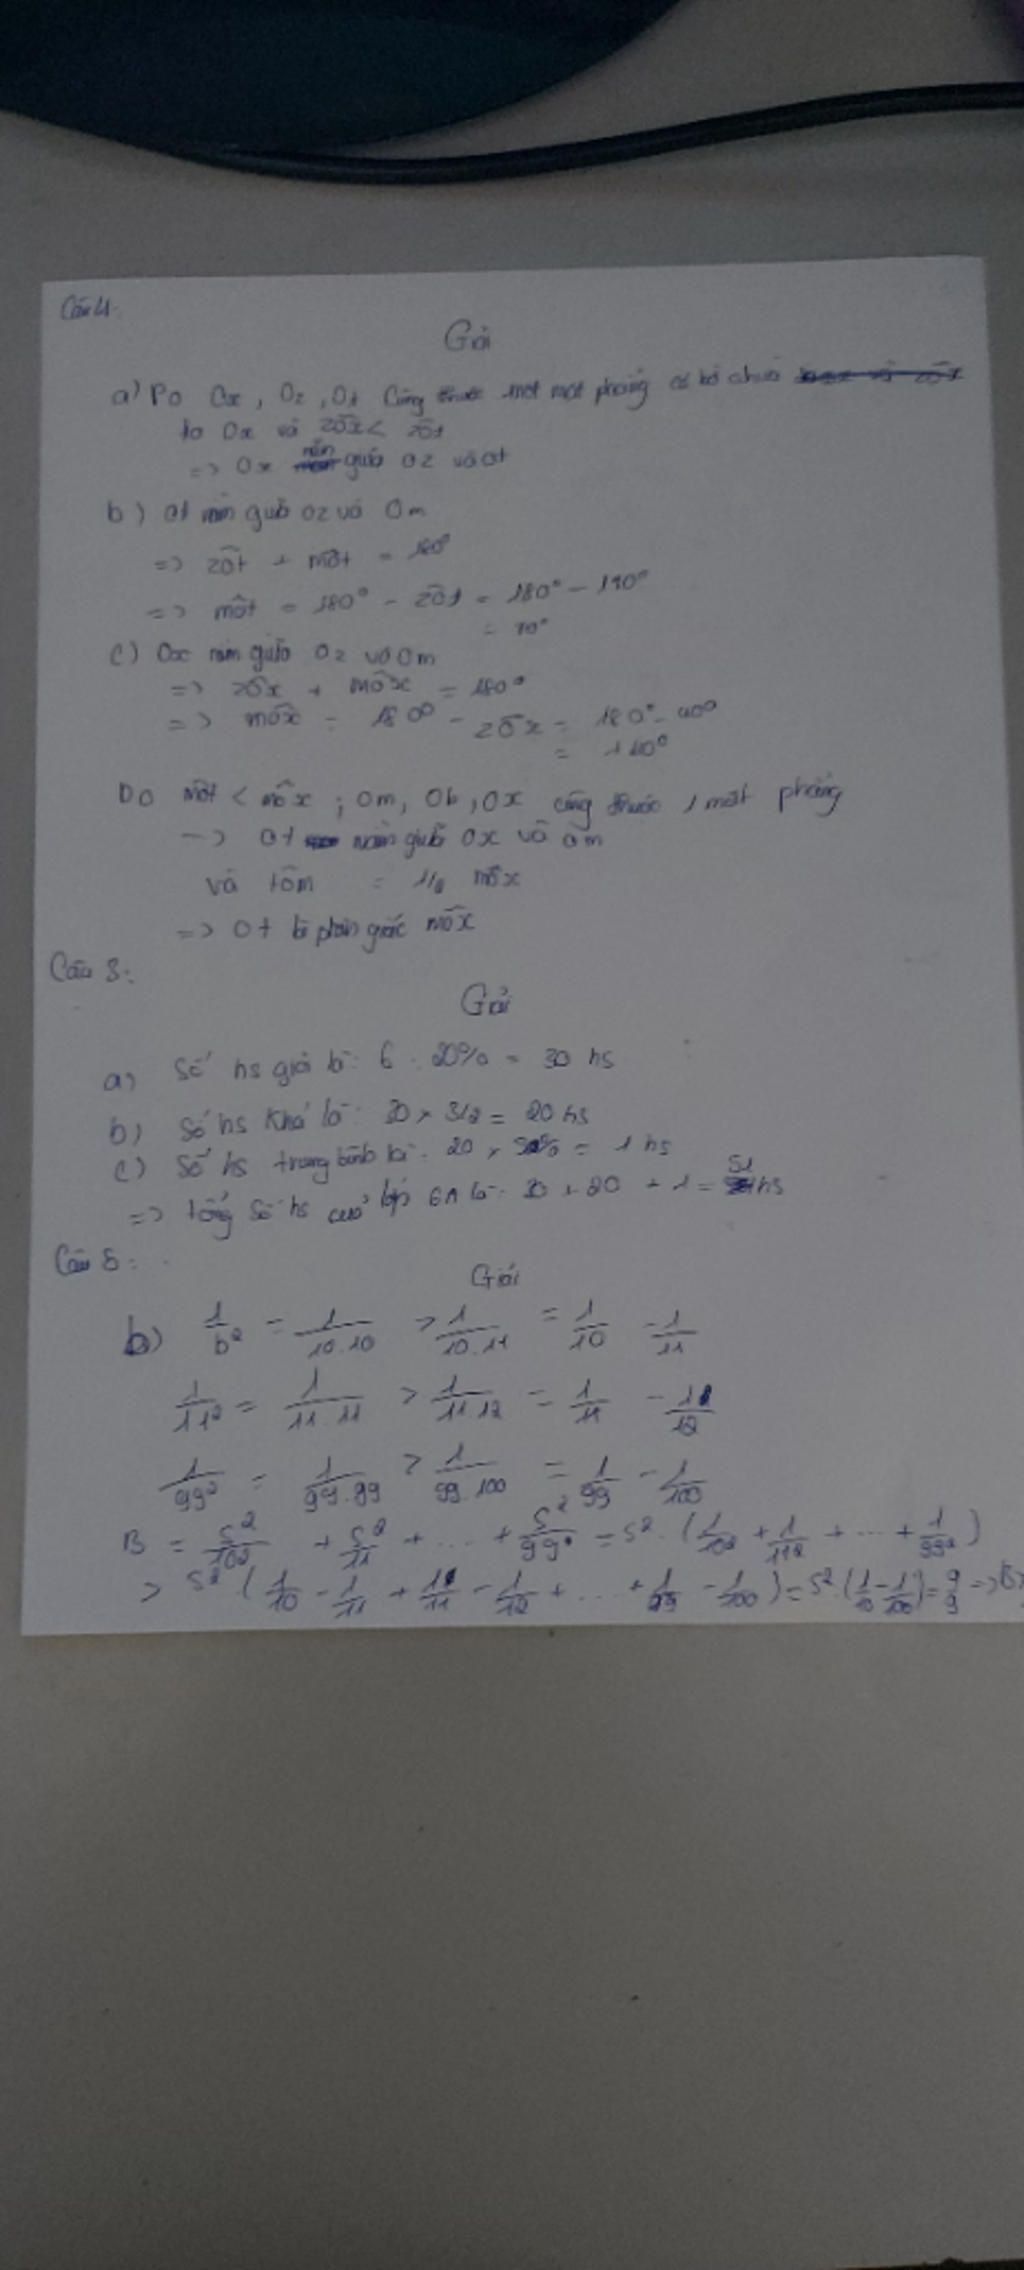 Câu 4.
Giải
a) Do Ox, Oz, Ot Cùng thuộc một mặt phẳng có bờ chứa
tia Ox và zOx < zOt
=> Ox nằm giữa Oz và Ot
b) Ot nằm giữa Oz và Om
=> zOt + mOt = 180°
=> mOt = 180° - zOt = 180° - 110°
= 70°
c) Ox nằm giữa Oz và Om
=> zOx + mOx = 180°
=> mOx = 180° - zOx = 180° - 40°
= 140°
Do mOt < mOx ; Om, Ot, Ox cùng thuộc 1 mặt phẳng
-> Ot nằm giữa Ox và Om
và tOm = 1/2 mOx
=> Ot là phân giác mOx
Câu 3:
Giải
a) Số hs giỏi là: 6 : 20% = 30 hs
b) Số hs Khá là: 30 x 3/2 = 20 hs
c) Số hs trung bình là: 20 x = 1 hs
=> tổng số hs của lớp 6A là: 30 + 20 + 1 = 51 hs
Câu 5:
Giải
b) 1/10² = 1/10.10 > 1/10.11 = 1/10 - 1/11
1/11² = 1/11.11 > 1/11.12 = 1/11 - 1/12
1/99² = 1/99.99 > 1/99.100 = 1/99 - 1/100
B = 5²/10² + 5²/11 + ... + 5²/99² = 5² . (1/10² + 1/11² + ... + 1/99²)
> 5² (1/10 - 1/11 + 1/11 - 1/12 + ... + 1/99 - 1/100) = 5² . (1/10 - 1/100) = 9/9 => B>